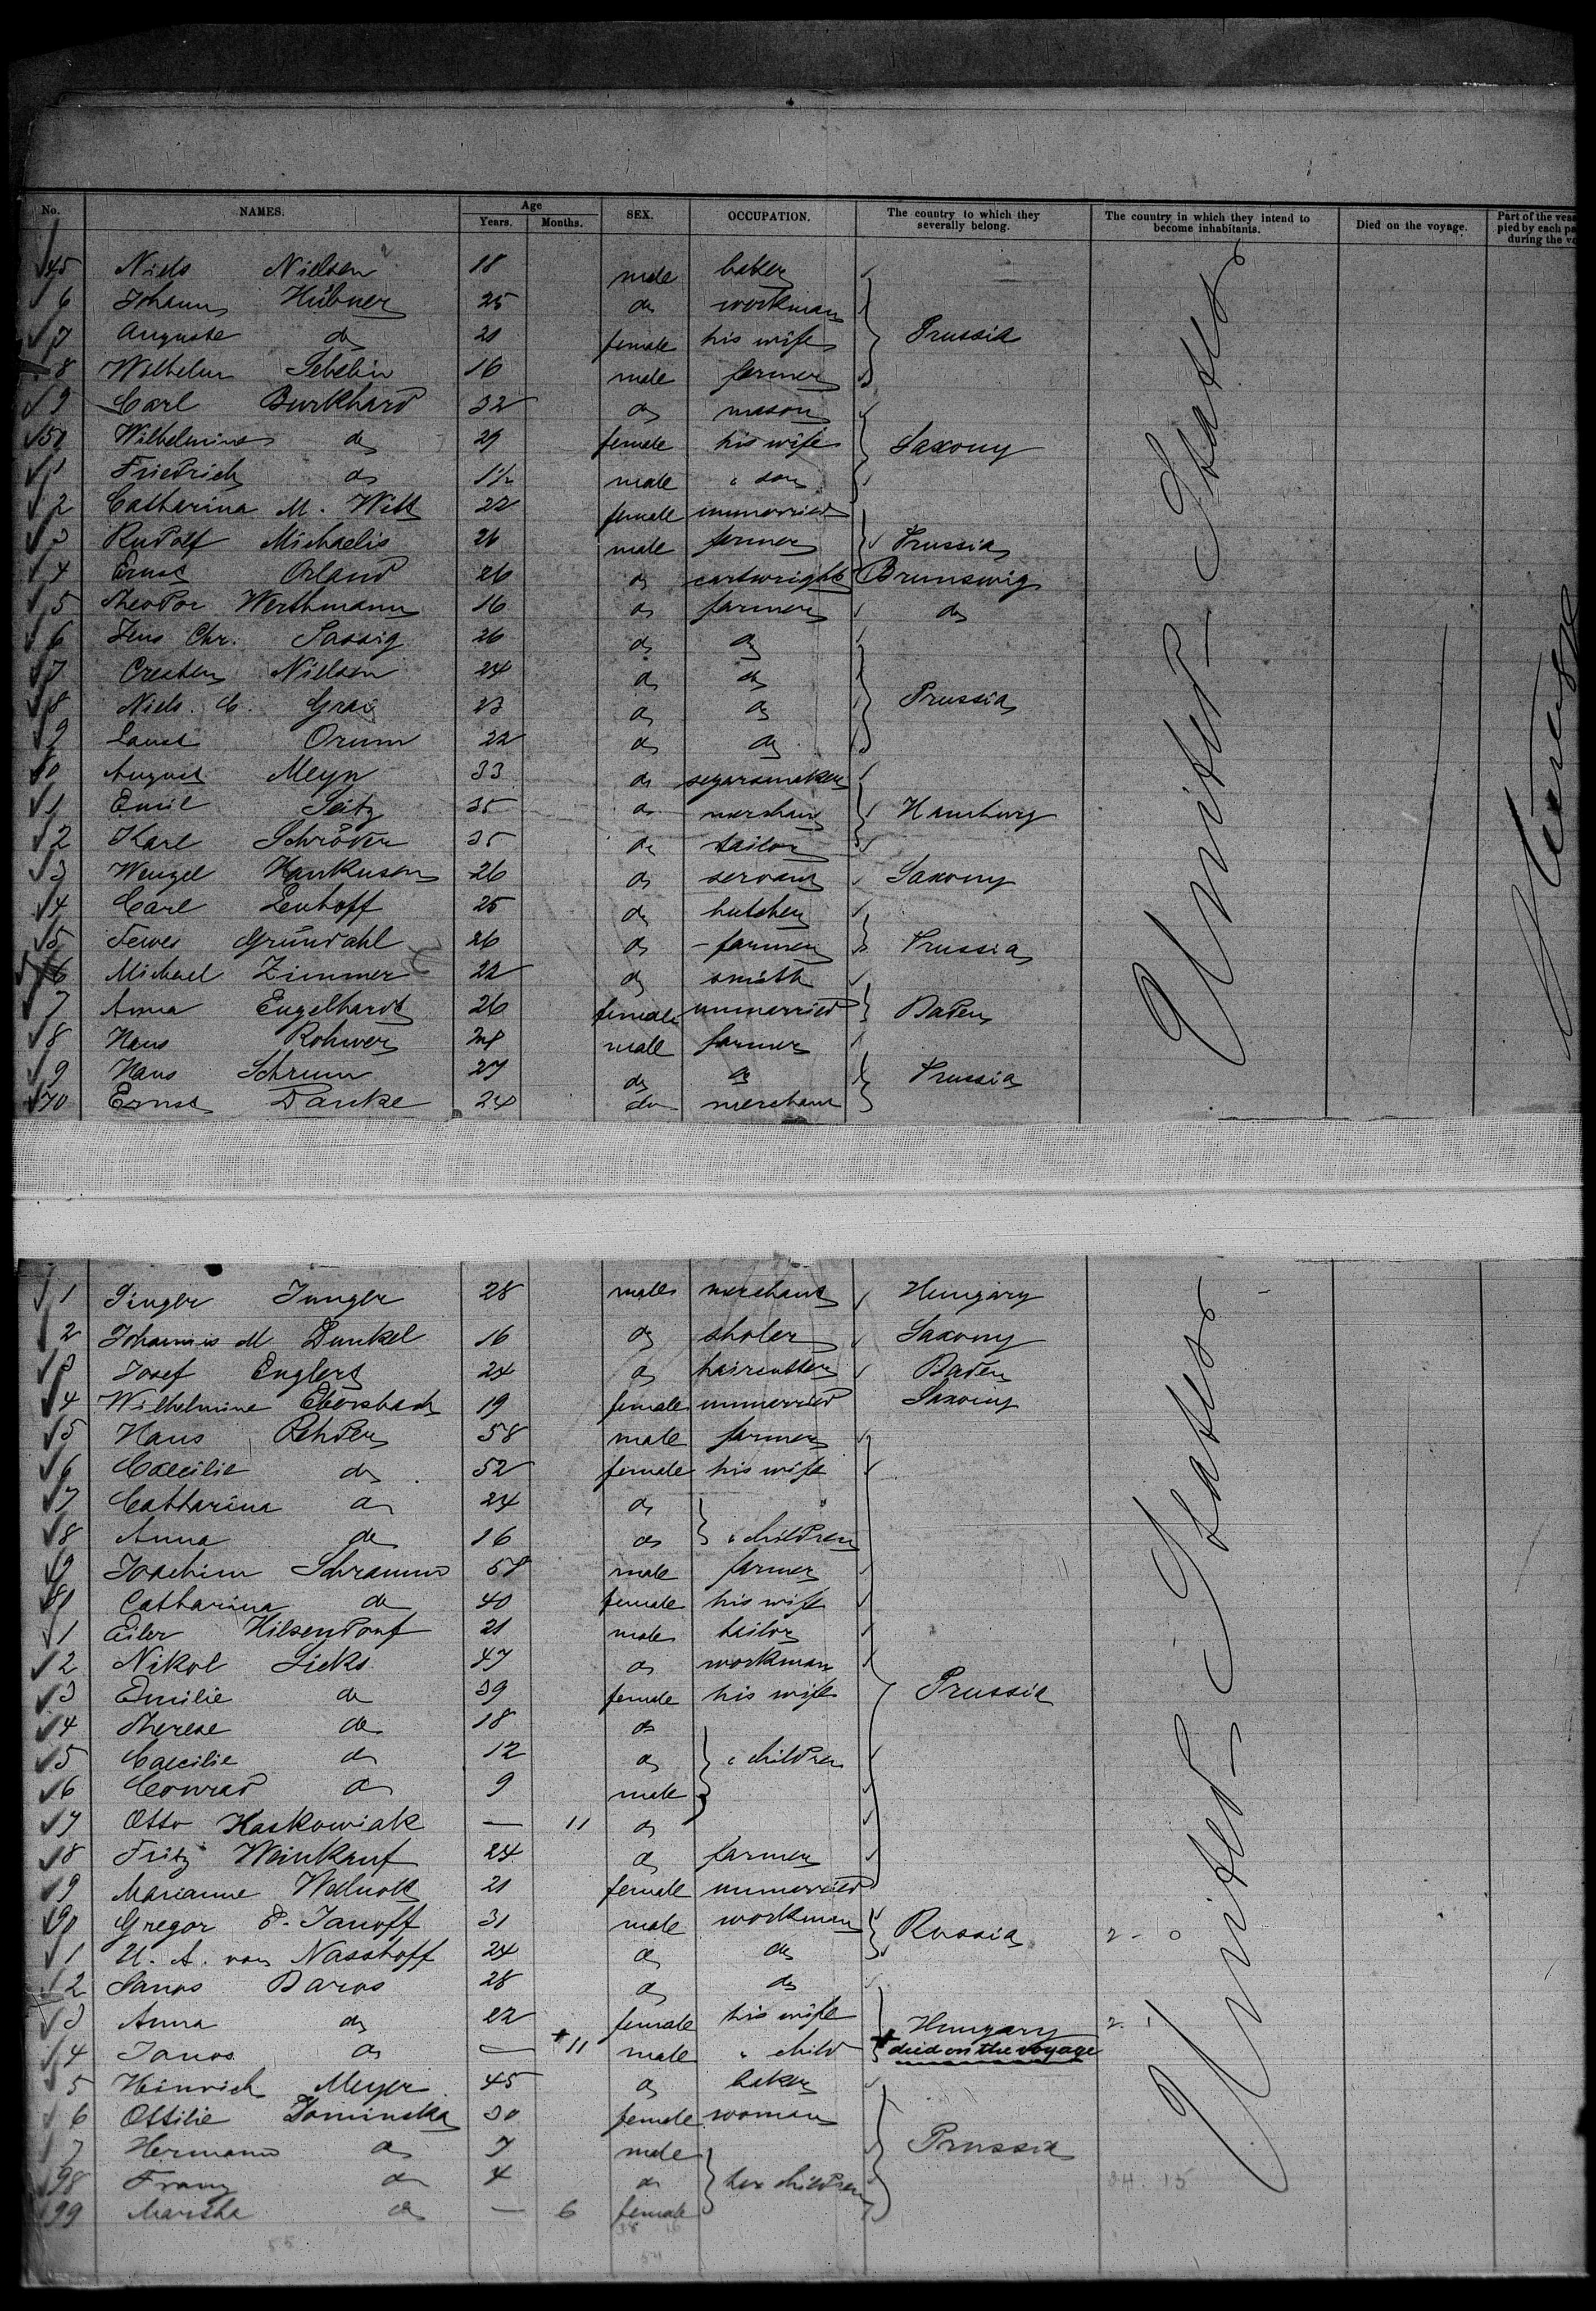 No. NAMES. Age Years. Months. SEX. OCCUPATION. The country to which they severally belong. The country in which they intend to become inhabitants. Died on the voyage. Part of the
45 Niels Nielsen 18 male baker
6 Johann Hübner 25 do workman
7 Auguste do 21 female his wife Prussia
8 Wilhelm 16 male farmer
9 Carl Burkhard 32 do mason
50 Wilhelmine do 29 female his wife Saxony
1 Friedrich do male " son
2 Catharina M. Witt 22 female unmarried
3 Rudolf Michaelis 26 male farmer Prussia
4 Ernst Orland 26 do cartwright Brunswig
5 Theodor Werthmann 16 do farmer do
6 Jens Chr. Sassig 26 do do
7 Cresten Nielsen 24 do do
8 Niels. C. 23 do do Prussia
9 Laust Orum 22 do do
60 August Meyn 33 do segarsmaker
1 Emil Seitz 35 do merchant Hamburg
2 Karl Schröder 35 do tailor
3 Wenzel Hankusen 26 do servant Saxony
4 Carl Lenhoff 25 do butcher
5 Tewes Gründahl 26 do farmer Prussia
6 Michael Zimmer 22 do smith
7 Anna Engelhardt 26 female unmarried Baden
8 Hans Rohwer 24 male farmer
9 Hans Schrum 27 do do Prussia
70 Ernst Danke 24 do merchant
United States
1 Junger 28 male merchant Hungary
2 Johannes M Dunkel 16 do sholer Saxony
3 Josef Englert 24 do haircutter Baden
4 Wilhelmine Ebersbach 19 female unmarried Saxony
5 Hans Rehder 58 male farmer
6 Caecilie do 52 female his wife
7 Catharina do 24 do
8 Anna do 16 do " children
9 Joachim Schramm 58 male farmer
80 Catharina do 40 female his wife
1 Eiler Hilsendorf 21 male tailor
2 Nikol Sieks 47 do workman
3 Emilie do 39 female his wife Prussia
4 Therese do 18 do
5 Caecilie do 12 do " children
6 Conrad do 9 male
7 Otto Kaskowiak — 11 do
8 Fritz Weinkauf 24 do farmer
9 Marianne 21 female unmarried
90 Gregor P. Janoff 31 male workman Russia
1 U. A. von Nasshoff 24 do do
2 Janos Baros 28 do do
3 Anna do 22 female his wife Hungary
4 Janos do — + 11 male " child + died on the voyage
5 Heinrich Meyer 45 do baker
6 Ottilie Dominska 30 female woman
7 Hermann do 7 male Prussia
98 Franz do 4 do her children
99 Martha do — 6 female
United States